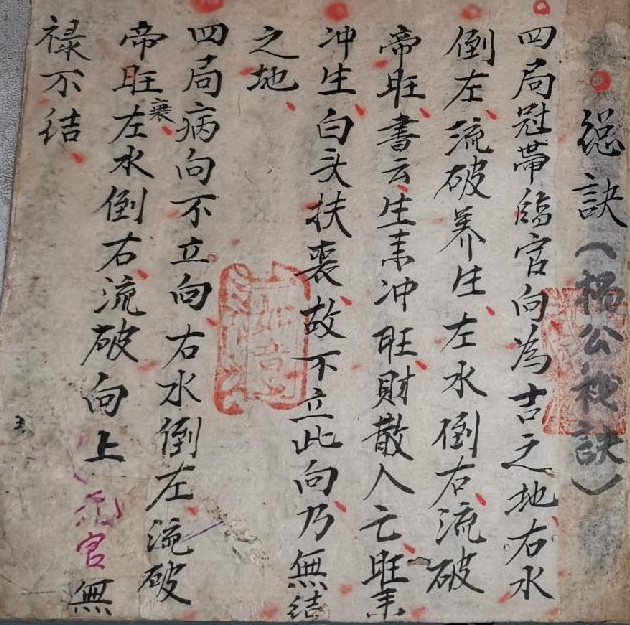 总訣（楊公秘訣）
四局冠帶臨官向為吉之地右水
倒左流破养生左水倒右流破
帝旺書云生来冲旺財散人亡旺来
冲生白头扶丧故不立此向乃無結
之地
四局病向不立向右水倒左流破
帝旺衰左水倒右流破向上官無
禄不结